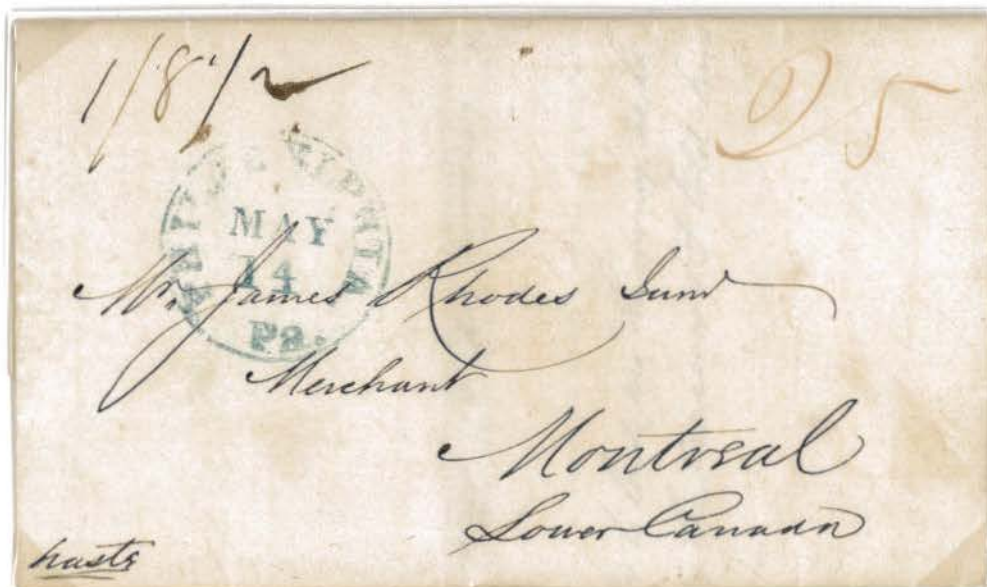 1/8 1/2
25
PHILADELPHIA
MAY
14
Pa.
Mr. James Rhodes Junr
Merchant
Montreal
Lower Canada
haste